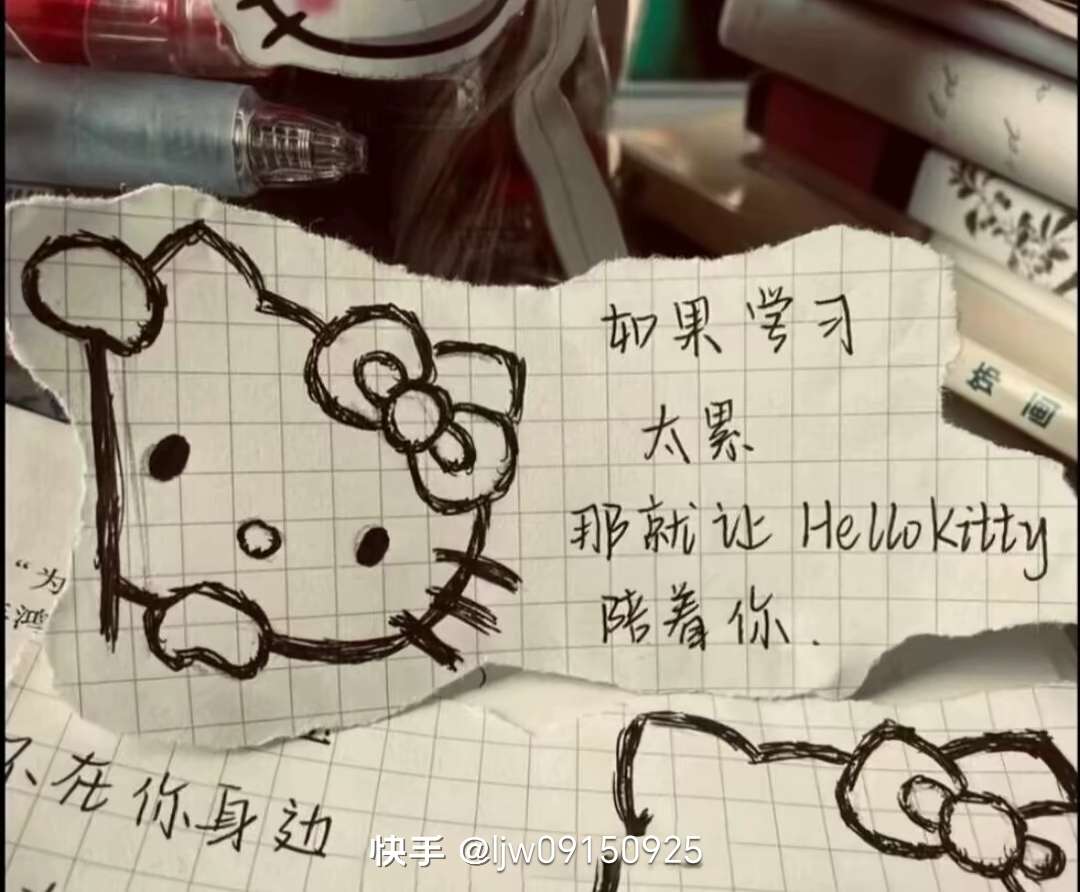 如果学习
太累
那就让 HelloKitty
陪着你.
饰 画
“为
鸿
不在你身边
快手 @ljw09150925